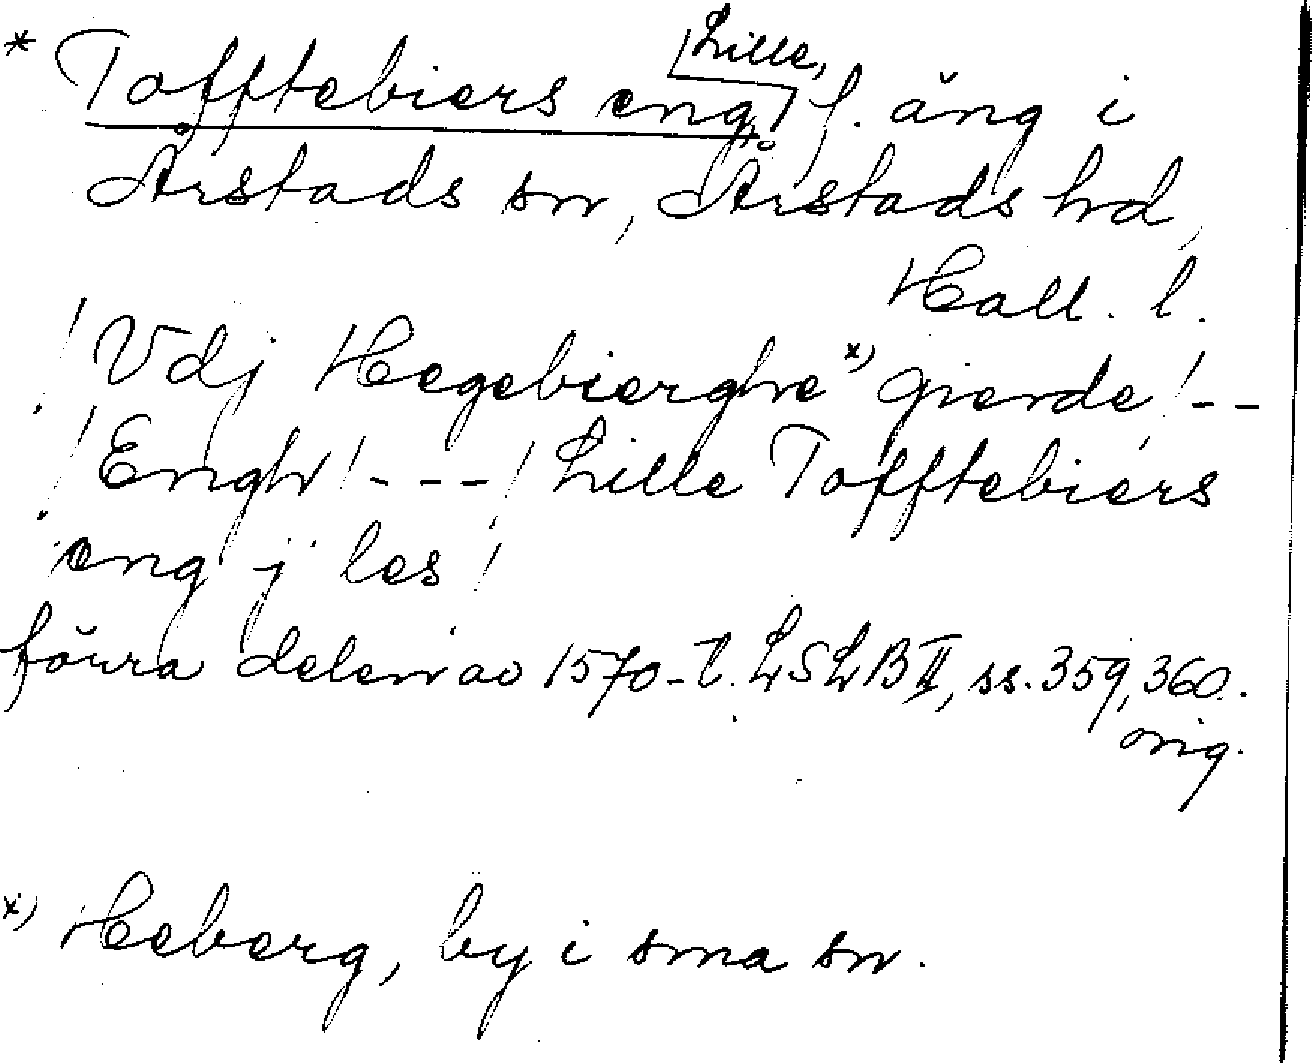 * Tofftebiers eng, Lille, f. äng i
Årstads sn, Årstads hd,
Hall. l.
! Vdj Hegebierghe x) gierde! --
! Engh! --- ! Lille Tofftebiers
eng j les!
förra delen av 1570-t. LSLB II, ss. 359, 360.
orig.
x) Heberg, by i sma sn.